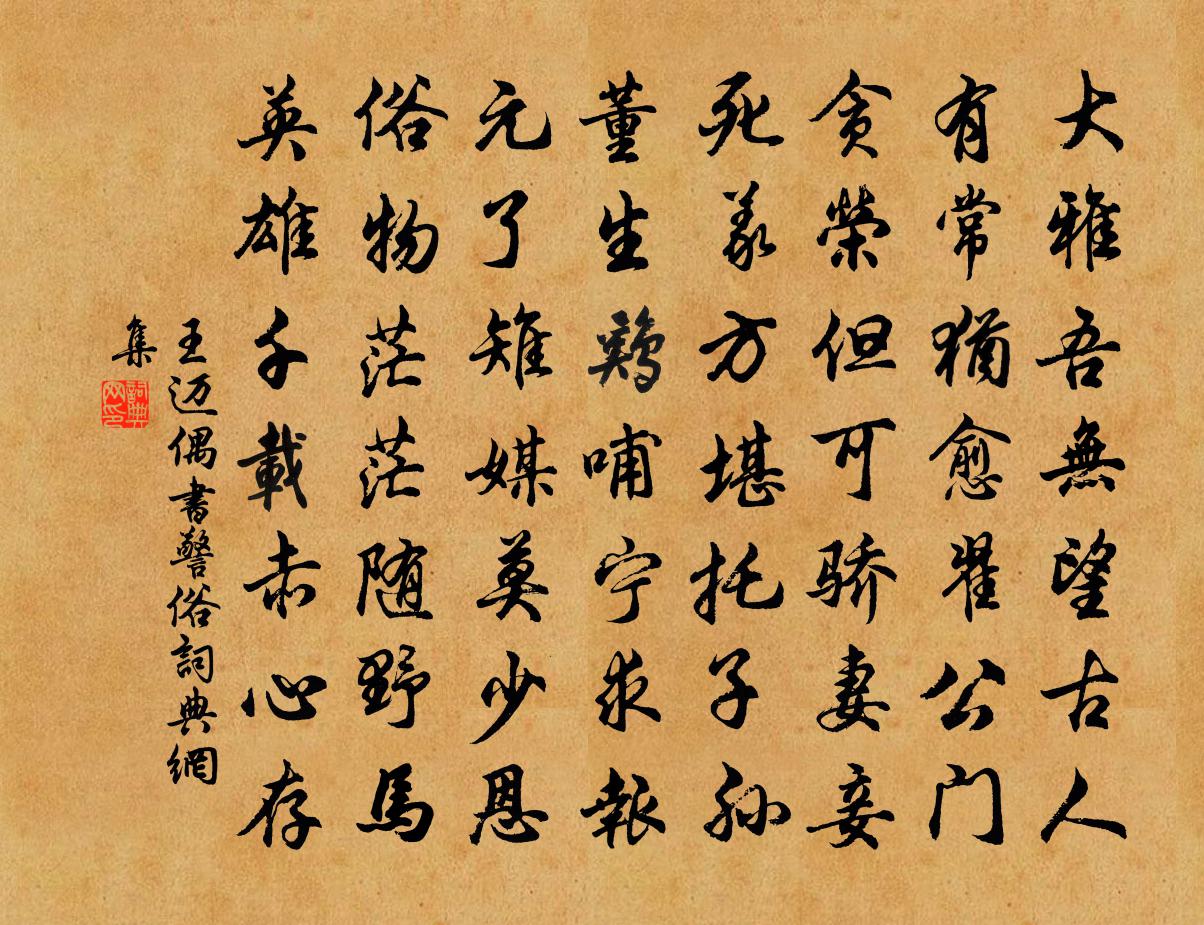 大雅吾無望古人
有常猶愈翟公门
贪榮但可骄妻妾
死義方堪托子孙
董生鷄哺宁求報
元了雉媒莫少恩
俗物茫茫随野馬
英雄千載赤心存
王迈偶書警俗詞典網
集
詞典网印